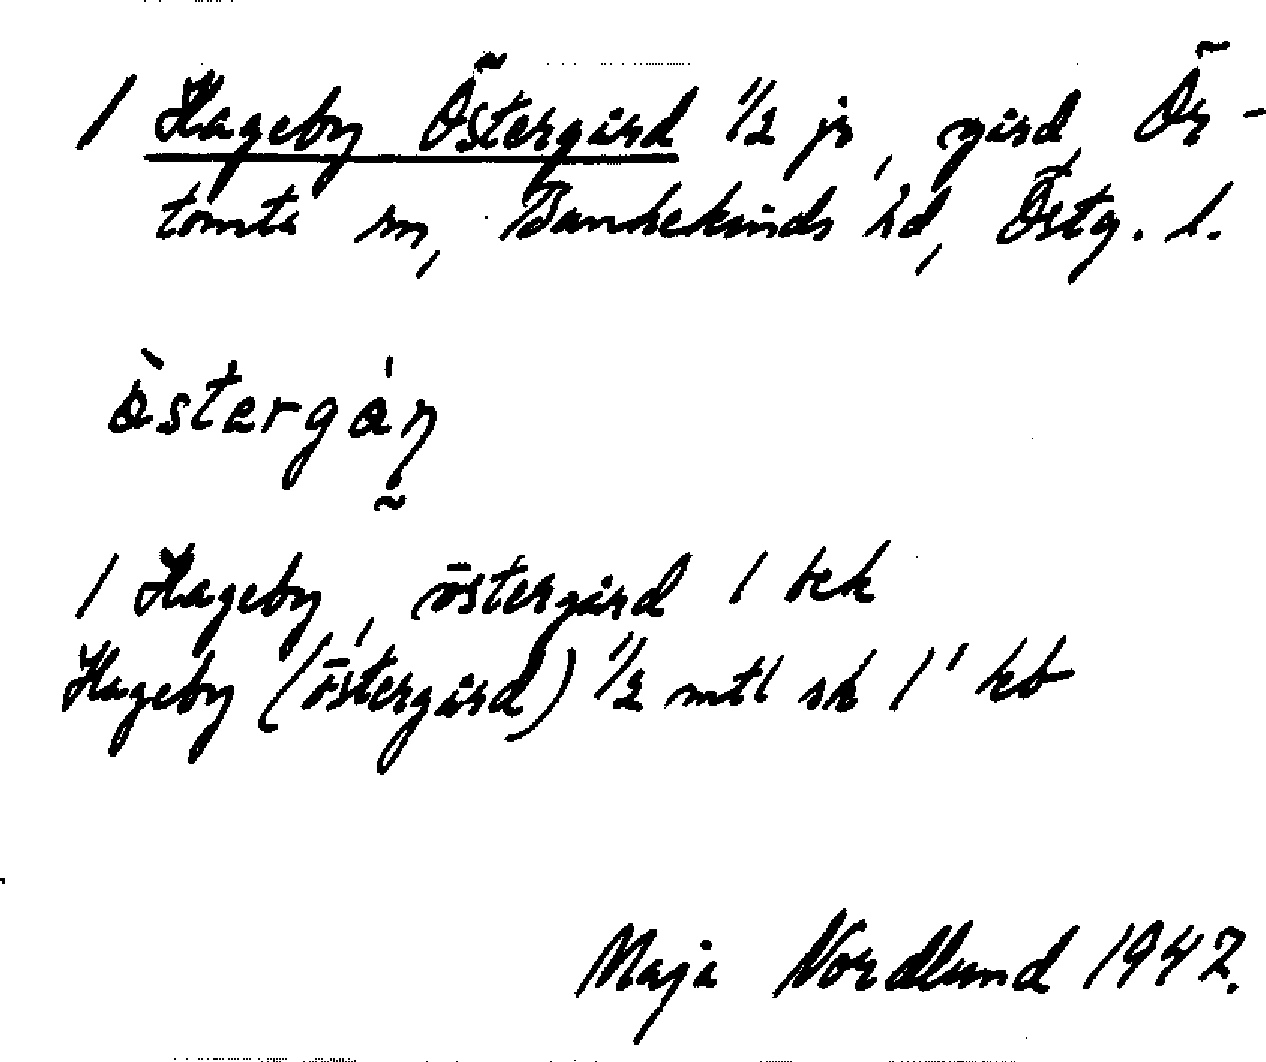 1 Hageby Östergård 1/2 jr, gård, Ör-
tomta sn, Bankekinds hd, Östg. l.
òstergán̰
1 Hageby, östergård 1 bek
Hageby (östergård) 1/2 mtl sk 1' kb
Maja Nordlund 1947.